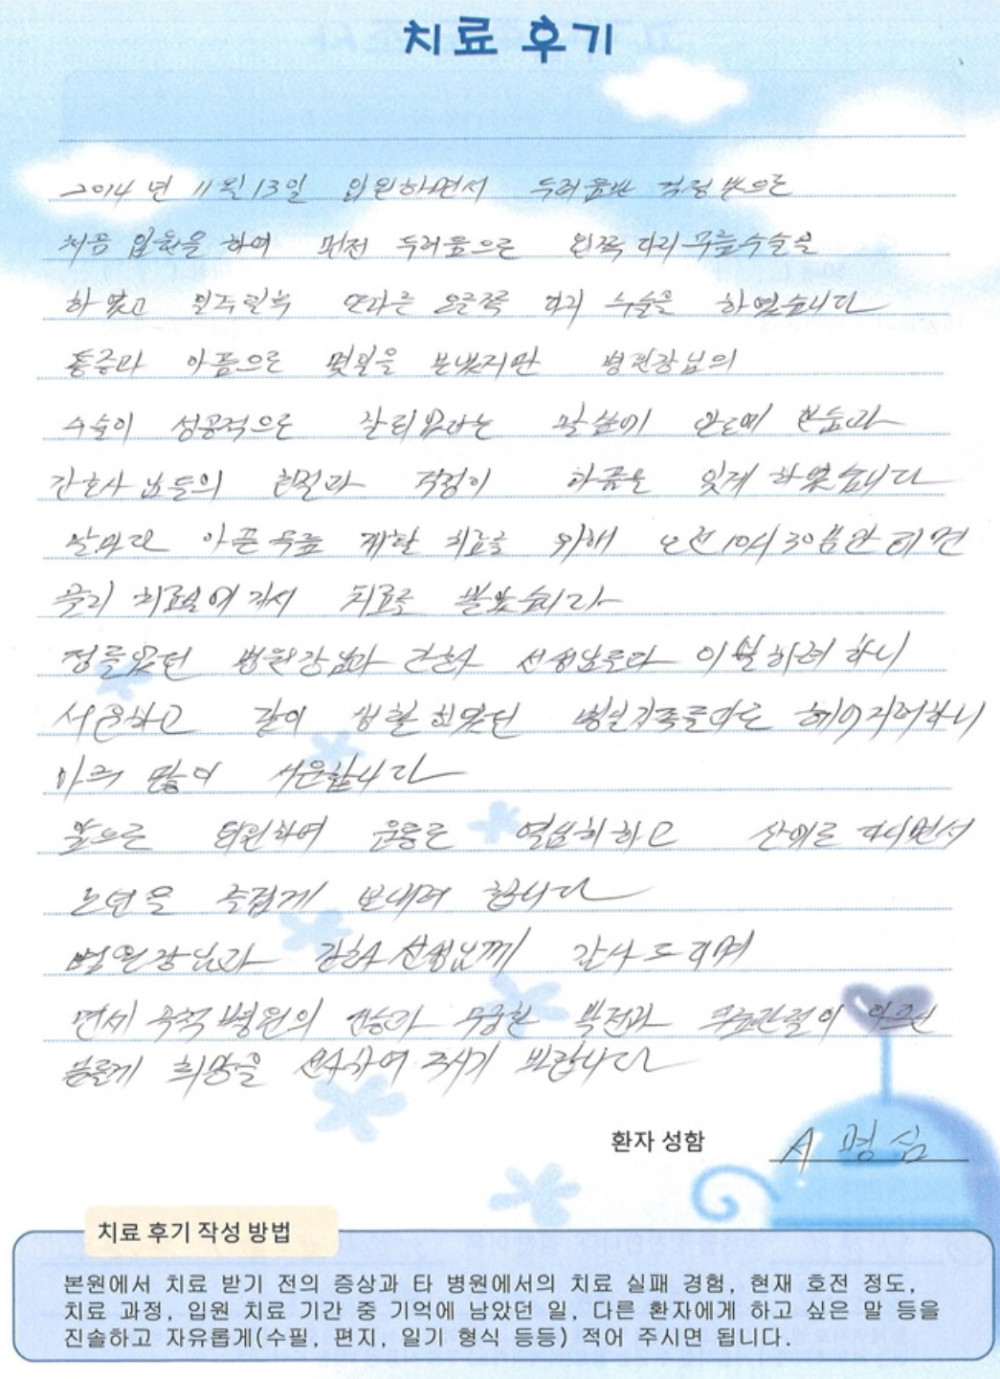 치료 후기
2014년 11월 13일 입원하면서 두려움과 걱정 반으로
처음 입원을 하여 먼저 두려움으로 왼쪽 다리 무릎수술을
하였고 일주일후 오른쪽 다리 수술을 하였습니다
통증과 아픔으로 몇일을 보냈지만 병원장님의
수술이 성공적으로 잘되었다는 말씀에 안도에
간호사님들의 친절과 걱정이 아픔을 잊게 하였습니다
날마다 아픈 무릎 재활 치료를 위해 오전 10시 30분만 되면
물리 치료실에 가서 치료를 받았습니다
정들었던 병원장님과 간호사 선생님들과 이별하려 하니
서운하고 같이 생활하였던 병실가족들과도 헤어지려하니
아주 많이 서운합니다
앞으로 퇴원하여 운동도 열심히 하고 산에도 다니면서
노년을 즐겁게 보내려 합니다
병원장님과 간호사 선생님께 감사드리며
연세 국적 병원의 무궁한 발전과 무릎관절이 아프신
분들께 희망을 선사하여 주시기 바랍니다
환자 성함 A 명심
치료 후기 작성 방법
본원에서 치료 받기 전의 증상과 타 병원에서의 치료 실패 경험, 현재 호전 정도,
치료 과정, 입원 치료 기간 중 기억에 남았던 일, 다른 환자에게 하고 싶은 말 등을
진솔하고 자유롭게(수필, 편지, 일기 형식 등등) 적어 주시면 됩니다.